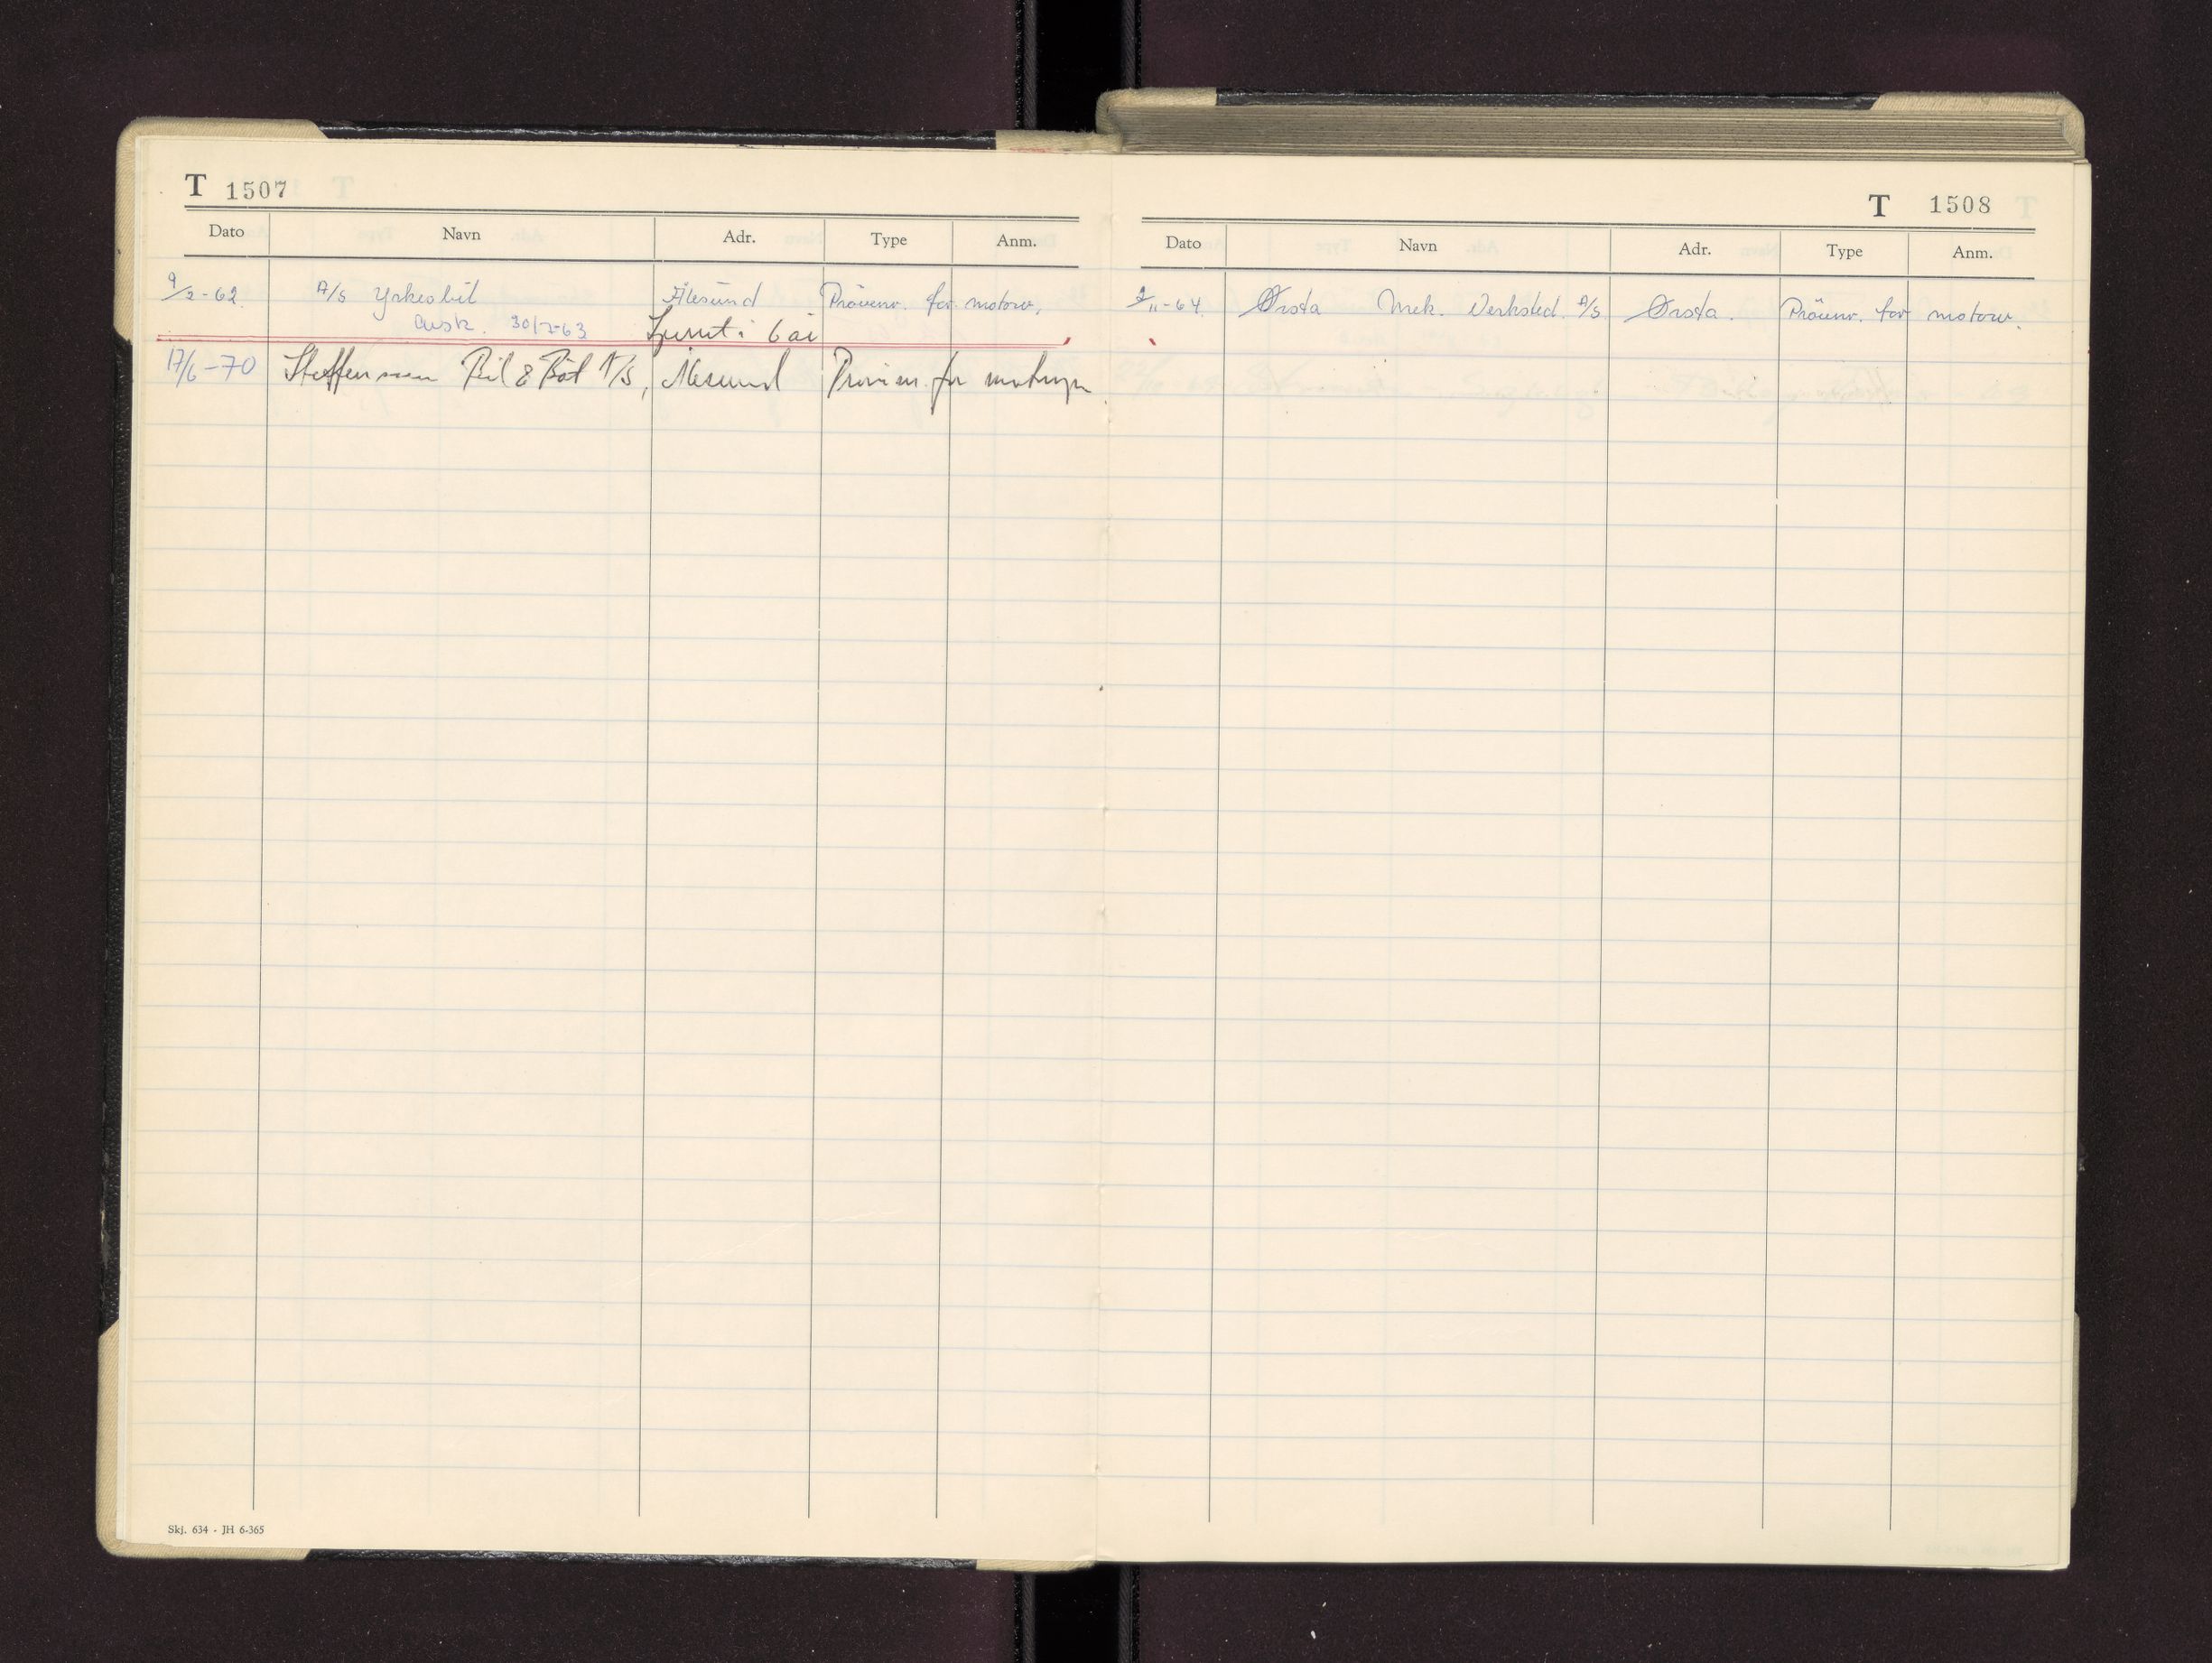 T 1507
Dato Navn Adr. Type Anm.
9/2-62 A/S Yrkesbil Ålesund Prövenr. for motorv.
avsk. 30/7-63 i 6 år
17/6-70 Steffensen Bil & Båt A/S, Ålesund for
Skj. 634 - JH 6-365
T 1508
Dato Navn Adr. Type Anm.
2/11-64 Ørsta Mek. Verksted A/S Ørsta. Prövenr. for motorv.